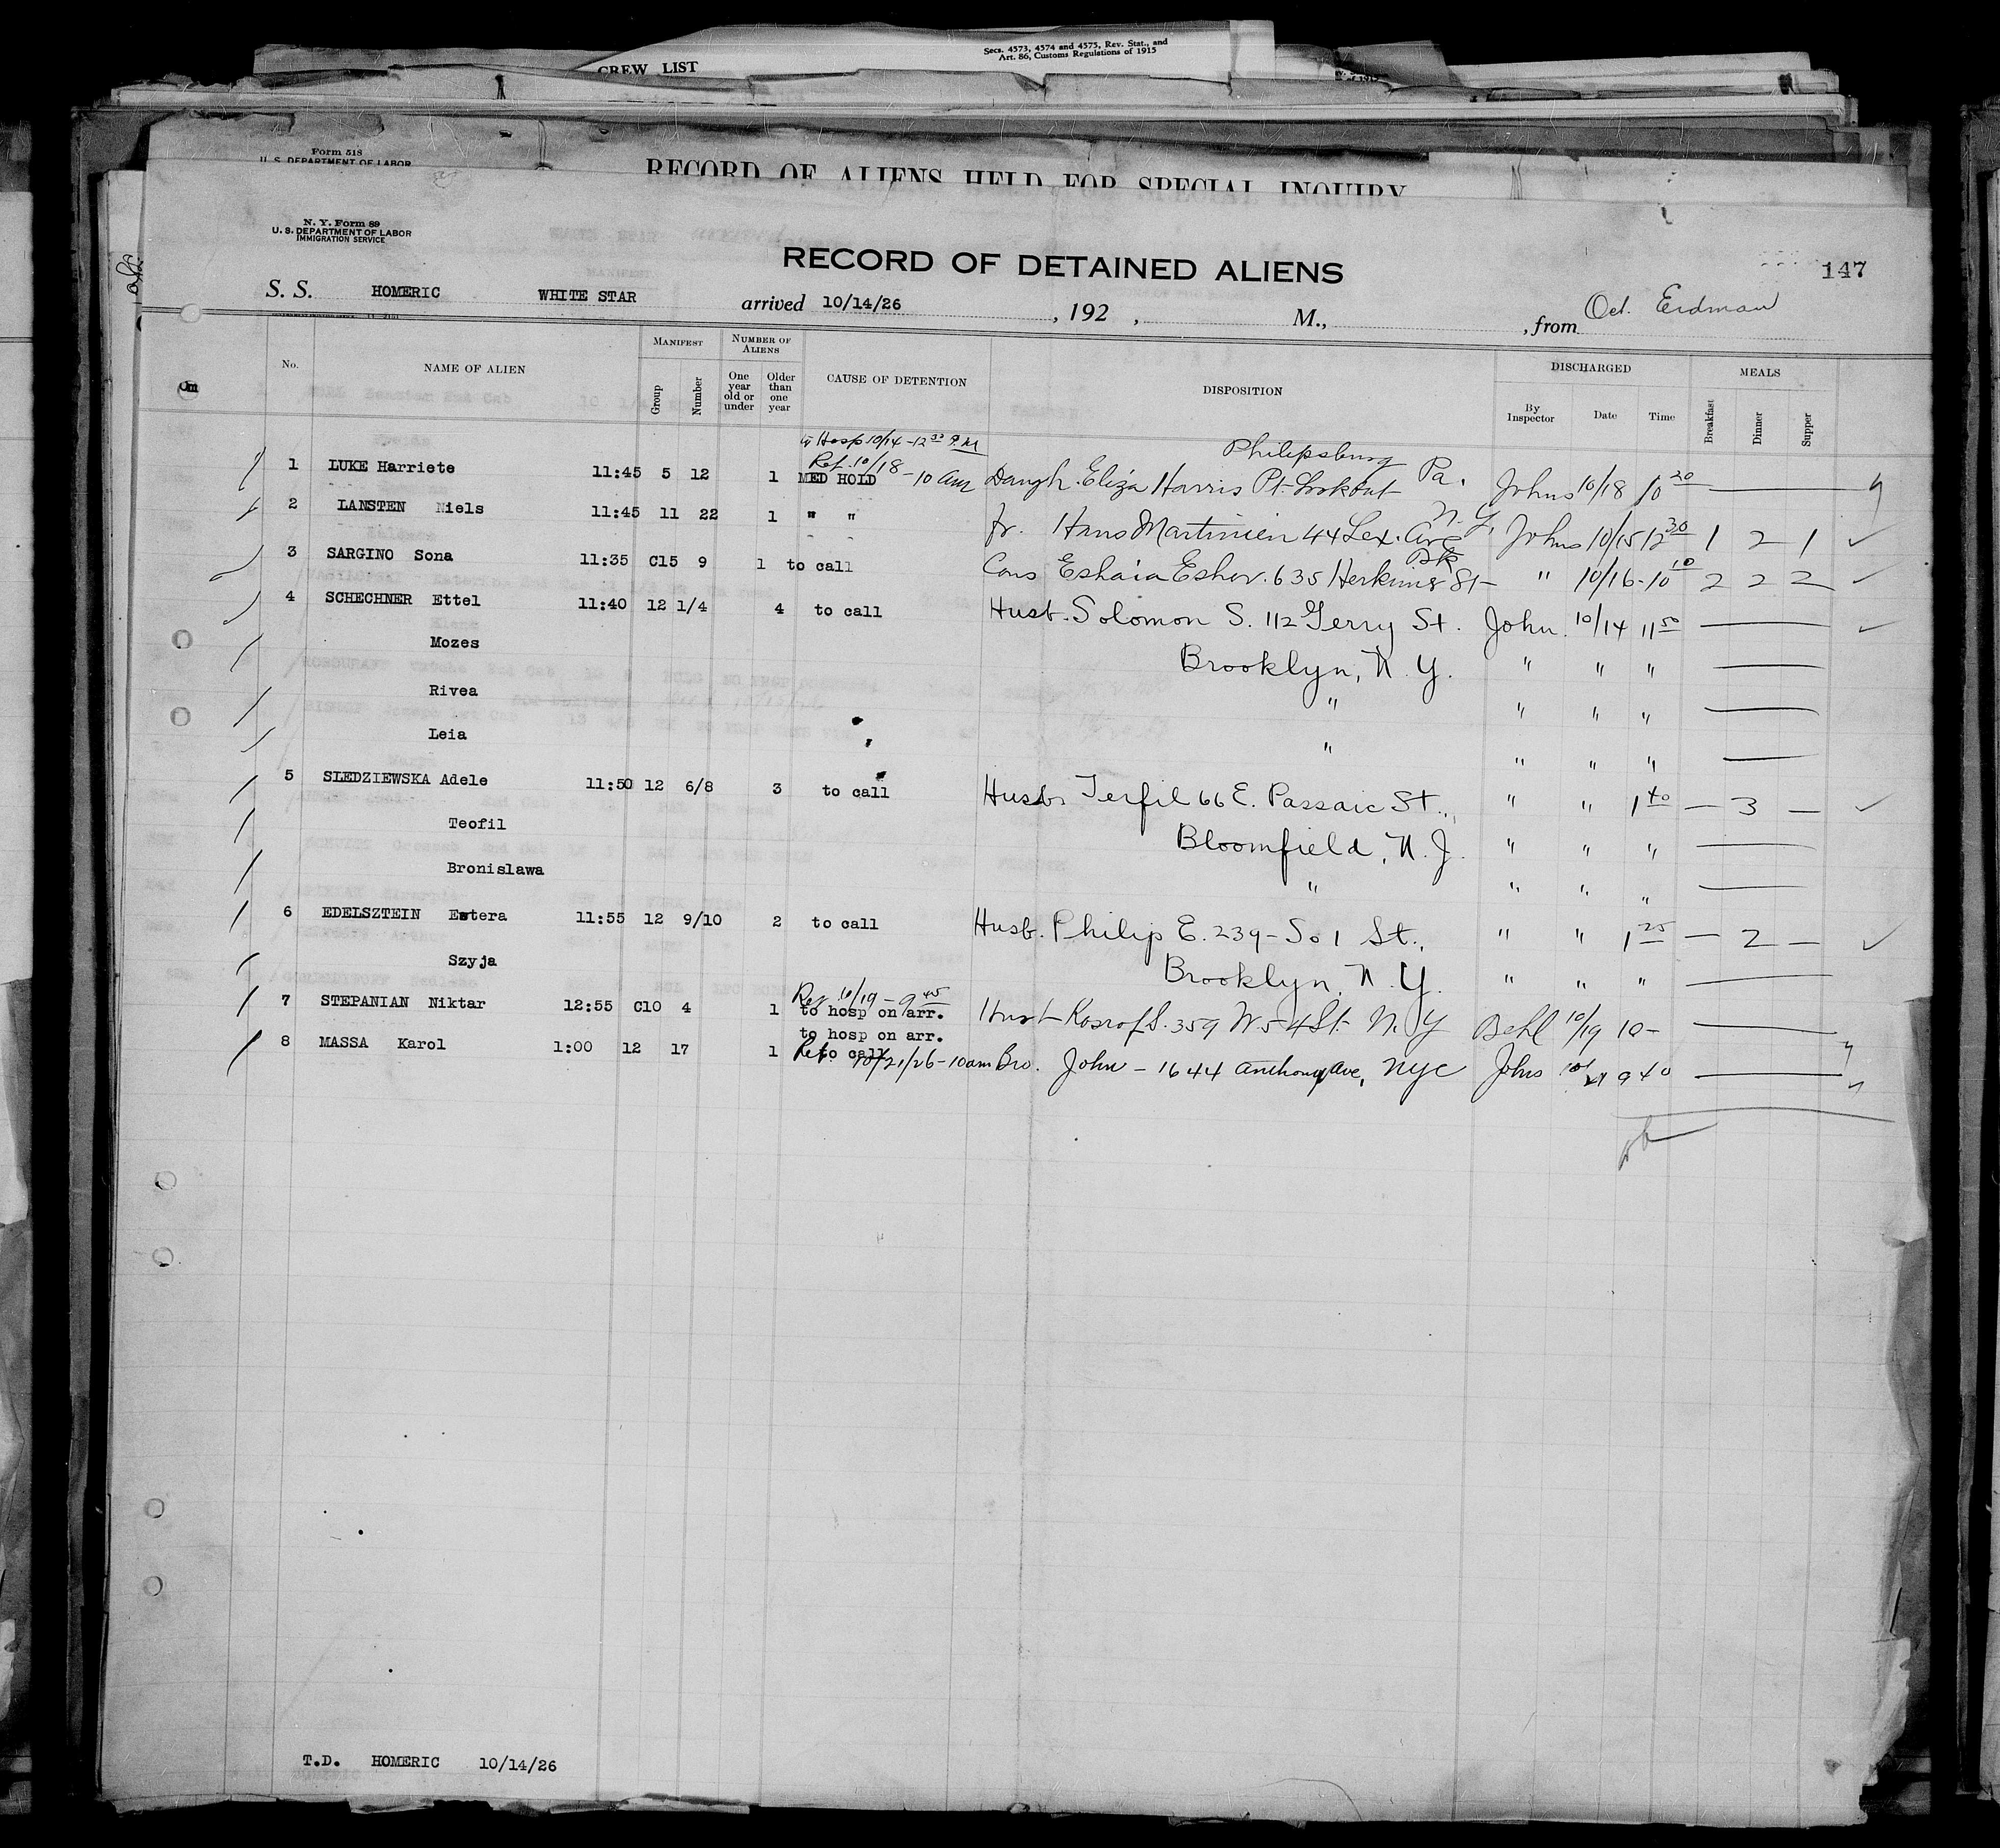 Secs. 4573, 4574 and 4575, Rev. Stat., and
Art. 86, Customs Regulations of 1915
CREW LIST
Form 518
U. S. DEPARTMENT OF LABOR
RECORD OF ALIENS HELD FOR SPECIAL INQUIRY
N. Y. Form 89
U. S. DEPARTMENT OF LABOR
IMMIGRATION SERVICE
RECORD OF DETAINED ALIENS
147
S. S. HOMERIC WHITE STAR arrived 10/14/26, 192 , M., , from Oct. Erdman
No. NAME OF ALIEN MANIFEST NUMBER OF ALIENS CAUSE OF DETENTION DISPOSITION DISCHARGED MEALS
Group Number One year old or under Older than one year By Inspector Date Time Breakfast Dinner Supper
to Hosp 10/14-12 30 P.M Philipsburg
Ret. 10/18 - 10 am
1 LUKE Harriete 11:45 5 12 1 MED HOLD Daugh. Eliza Harris Pt. Lookout Pa. Johns 10/18 10 20
N.Y.
2 LANSTEN Niels 11:45 11 22 1 " " fr. Hans Martinien 44 Lex. Ave Johns 10/15 12 30 1 2 1
Bk
3 SARGINO Sona 11:35 C15 9 1 to call Cous Eshaia Eshov. 635 Herkimer St- " 10/16 - 10 10 2 2 2
4 SCHECHNER Ettel 11:40 12 1/4 4 to call Husb. Solomon S. 112 Gerry St. John. 10/14 11 50
Mozes Brooklyn, N. Y. " " "
Rivea " " " "
Leia " " " "
5 SLEDZIEWSKA Adele 11:50 12 6/8 3 to call Husb. Terfil 66 E. Passaic St., " " 1 40 — 3 —
Teofil Bloomfield, N. J. " " "
Bronislawa " " " "
6 EDELSZTEIN Estera 11:55 12 9/10 2 to call Husb. Philip E. 239 - So 1 St., " " 1 25 — 2 —
Szyja Brooklyn, N. Y. " " "
Ret 10/19 - 9 45
7 STEPANIAN Niktar 12:55 C10 4 1 to hosp on arr. Husb- Kosrof S. 359 W. 54 St- N. Y Behl 10/19 10 -
to hosp on arr.
8 MASSA Karol 1:00 12 17 1 to call Ret. 10/21/26 - 10 am Bro. John - 1644 Anthony Ave, NYC Johns 10/21 9 40
T.D. HOMERIC 10/14/26